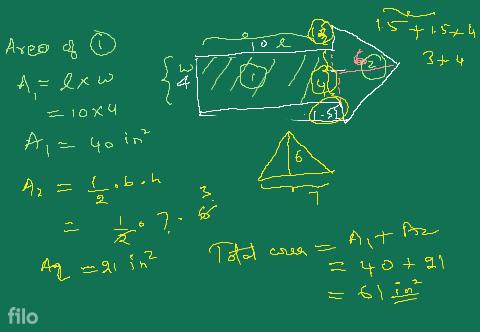 Area of ①
A₁ = l × w
= 10 × 4
A₁ = 40 in²
A₂ = 1/2 · b · h
= 1/2 · 7 · 6 3
A₂ = 21 in²
10 l
w
4
1
4
1.5
6
2
1.5 + 1.5 + 4
3 + 4
6
7
Total area = A₁ + A₂
= 40 + 21
= 61 in²
filo